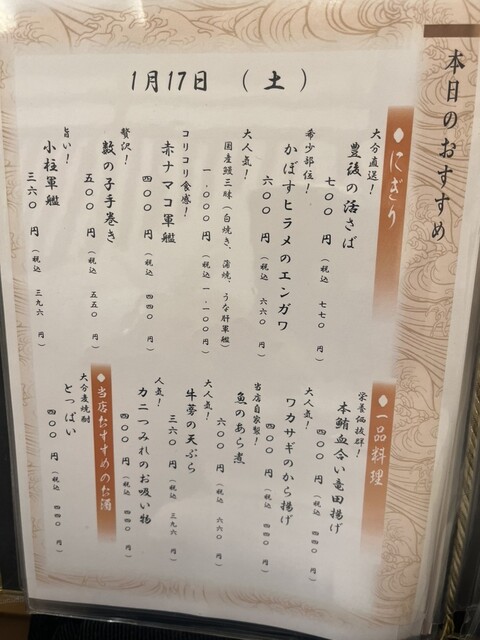 本日のおすすめ
1月17日 （土）
◆にぎり
大分直送！
豊後の活さば
七〇〇 円（税込 七七〇 円）
希少部位！
かぼすヒラメのエンガワ
六〇〇 円（税込 六六〇 円）
大人気！
国産鰻三昧（白焼き、蒲焼、うな肝軍艦）
一、〇〇〇 円（税込一、一〇〇円）
コリコリ食感！
赤ナマコ軍艦
四〇〇 円（税込 四四〇 円）
贅沢！
数の子手巻き
五〇〇 円（税込 五五〇 円）
旨い！
小柱軍艦
三六〇 円（税込 三九六 円）
◆一品料理
栄養価抜群！
本鮪血合い竜田揚げ
四〇〇 円（税込 四四〇 円）
大人気！
ワカサギのから揚げ
四〇〇 円（税込 四四〇 円）
当店自家製！
魚のあら煮
六〇〇 円（税込 六六〇 円）
大人気！
牛蒡の天ぷら
三六〇 円（税込 三九六 円）
人気！
カニつみれのお吸い物
四〇〇 円（税込 四四〇 円）
◆当店おすすめのお酒
大分麦焼酎
とっぱい
四〇〇 円（税込 四四〇 円）